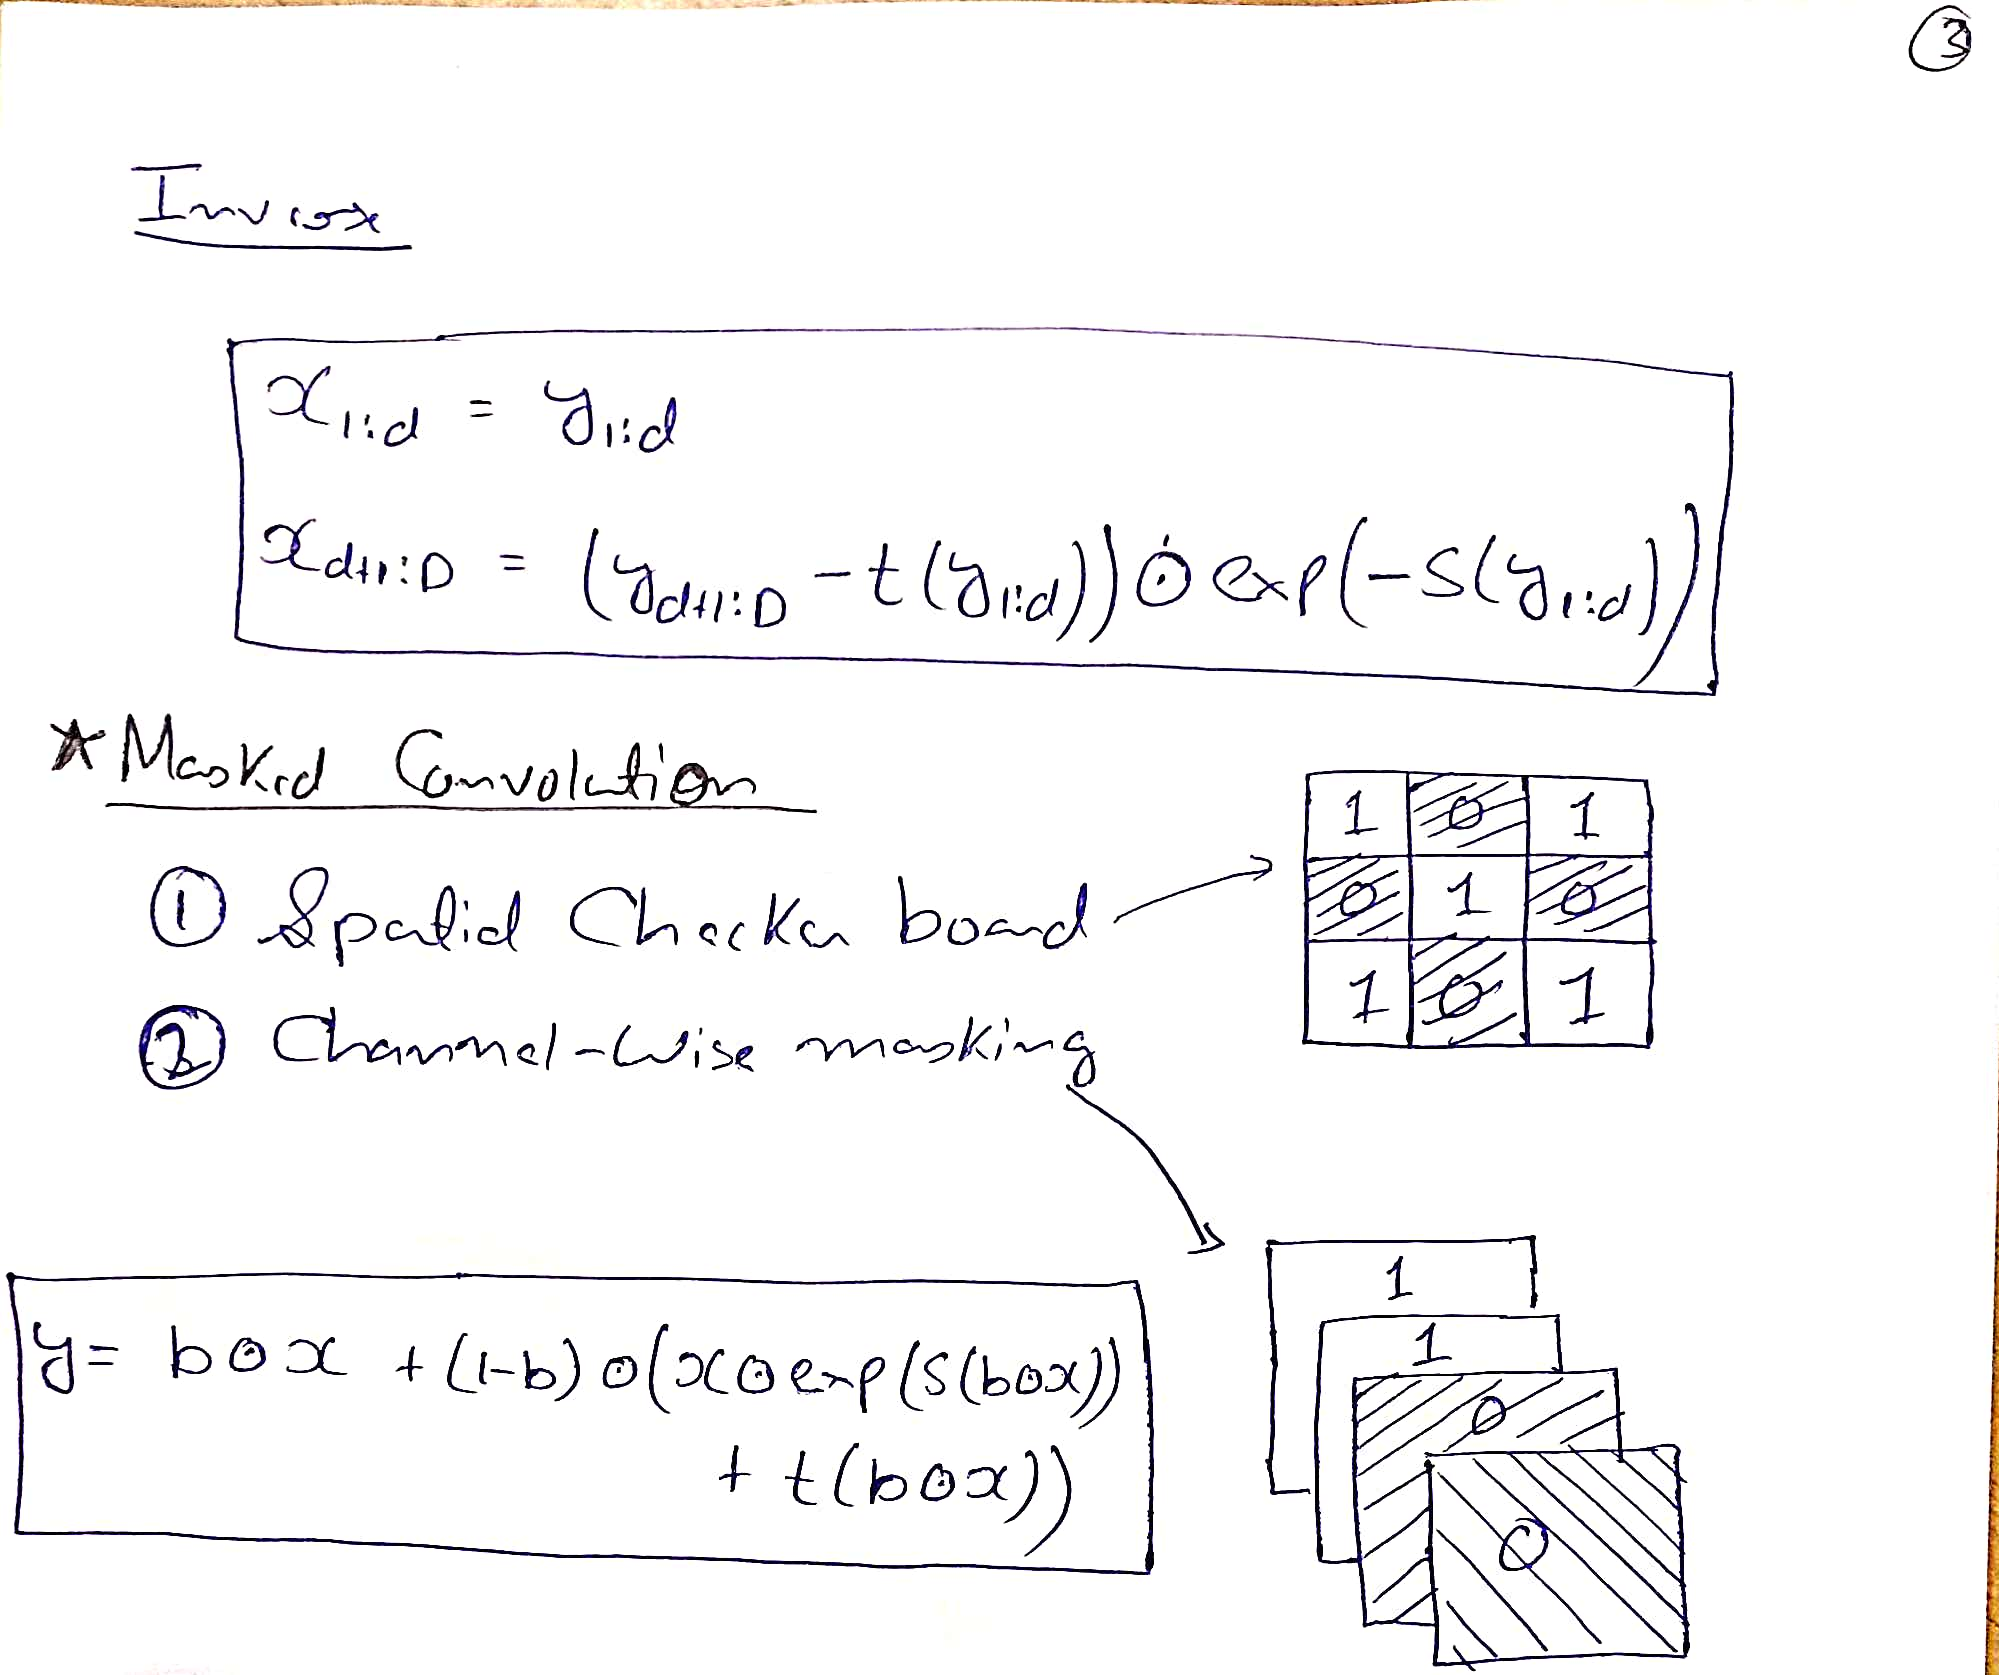 ③
Inverse
x₁:d = y₁:d
x_d+1:D = (y_d+1:D − t(y₁:d)) ⊙ exp(−s(y₁:d))
★ Masked Convolution
① Spatial Checker board
② Channel-Wise masking
1 0 1
0 1 0
1 0 1
1
1
0
0
y = b⊙x + (1−b)⊙(x⊙exp(s(b⊙x))
+ t(b⊙x))